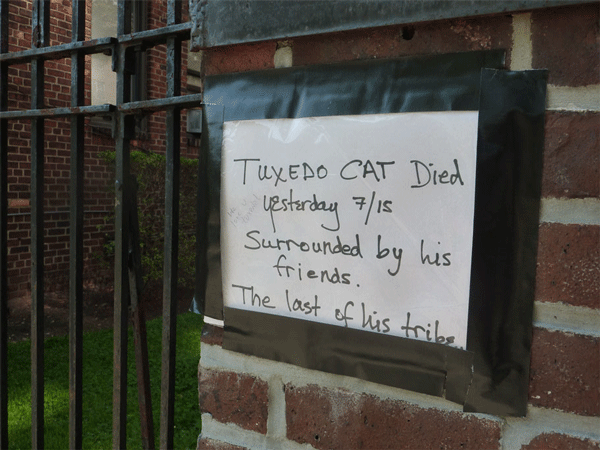 TUXEDO CAT Died
yesterday 7/15
Surrounded by his
friends.
The last of his tribe.